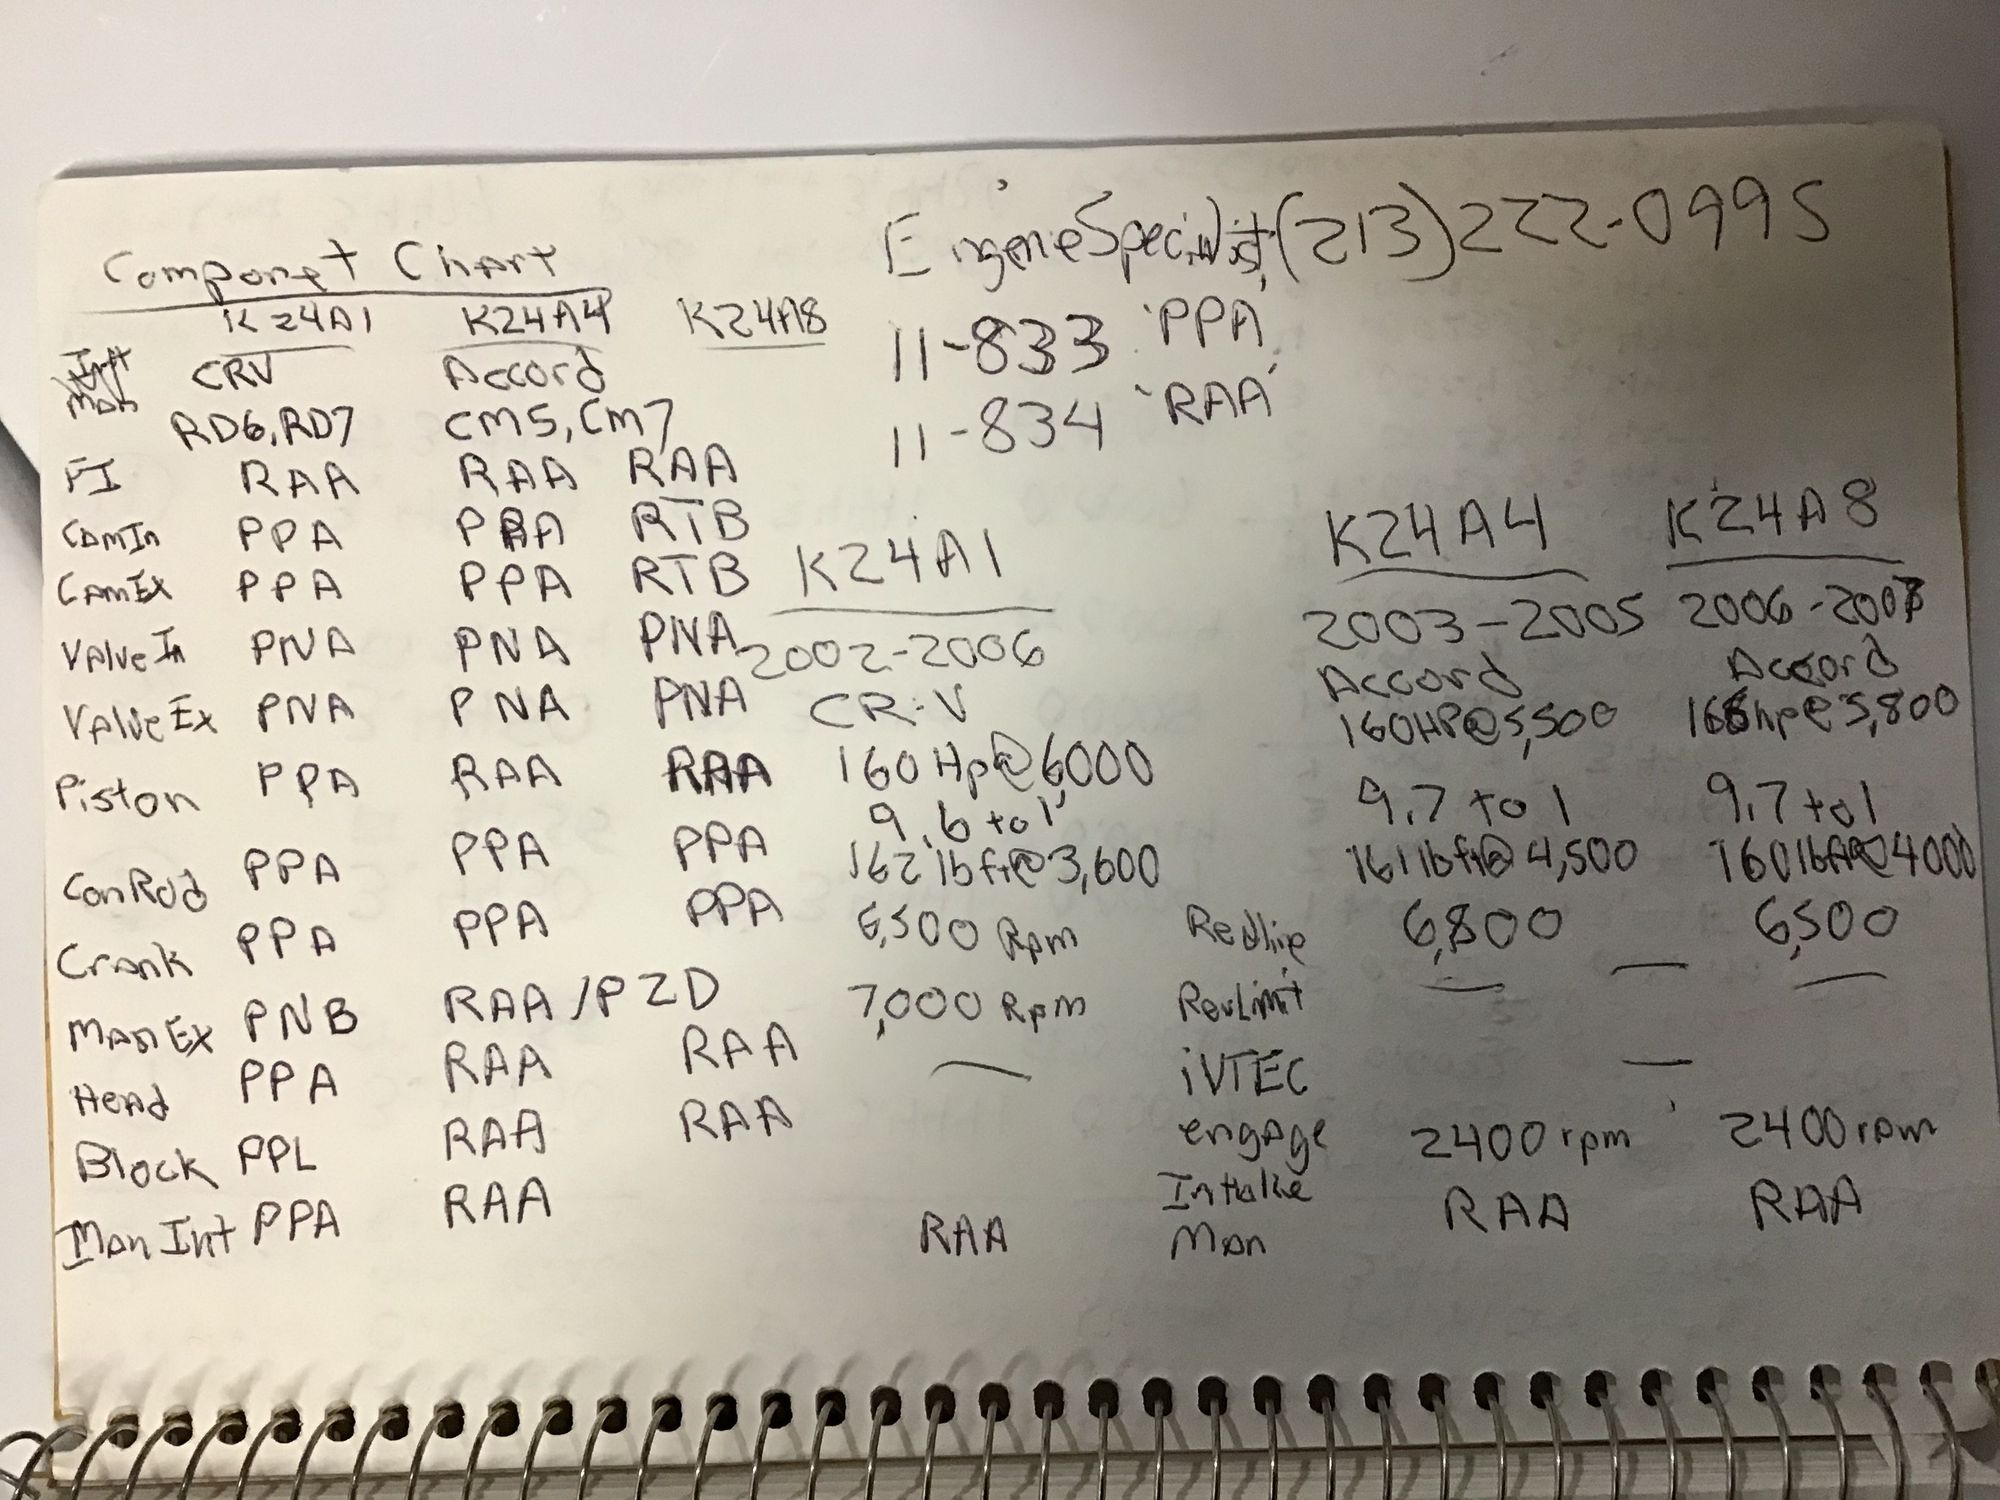 Componet Chart
K24A1 K24A4 K24A8
CRV Accord
RD6, RD7 CM5, CM7
FI RAA RAA RAA
CamIn PPA PPA RTB
CamEx PPA PPA RTB
ValveIn PNA PNA PNA
ValveEx PNA PNA PNA
Piston PPA RAA RAA
ConRod PPA PPA PPA
Crank PPA PPA PPA
ManEx PNB RAA / PZD
Head PPA RAA RAA
Block PPL RAA RAA
Man Int PPA RAA
(213) 222-0995
11-833 'PPA'
11-834 'RAA'
K24A1
2002-2006
CR-V
160 Hp@6,000
9.6 to 1
162 lbft@3,600
6,500 Rpm
7,000 Rpm
—
RAA
Redline
RevLimit
iVTEC
engage
Intake
Man
K24A4
2003-2005
Accord
160HP@5,500
9.7 to 1
161 lbft@4,500
6,800
—
2400 rpm
RAA
K24A8
2006-2007
Accord
166hp@5,800
9.7 to 1
160 lbft@4000
6,500
—
2400 rpm
RAA